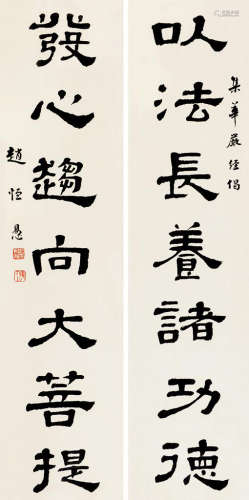 集華嚴經偈
以法長養諸功德
發心趨向大菩提
趙恒惖